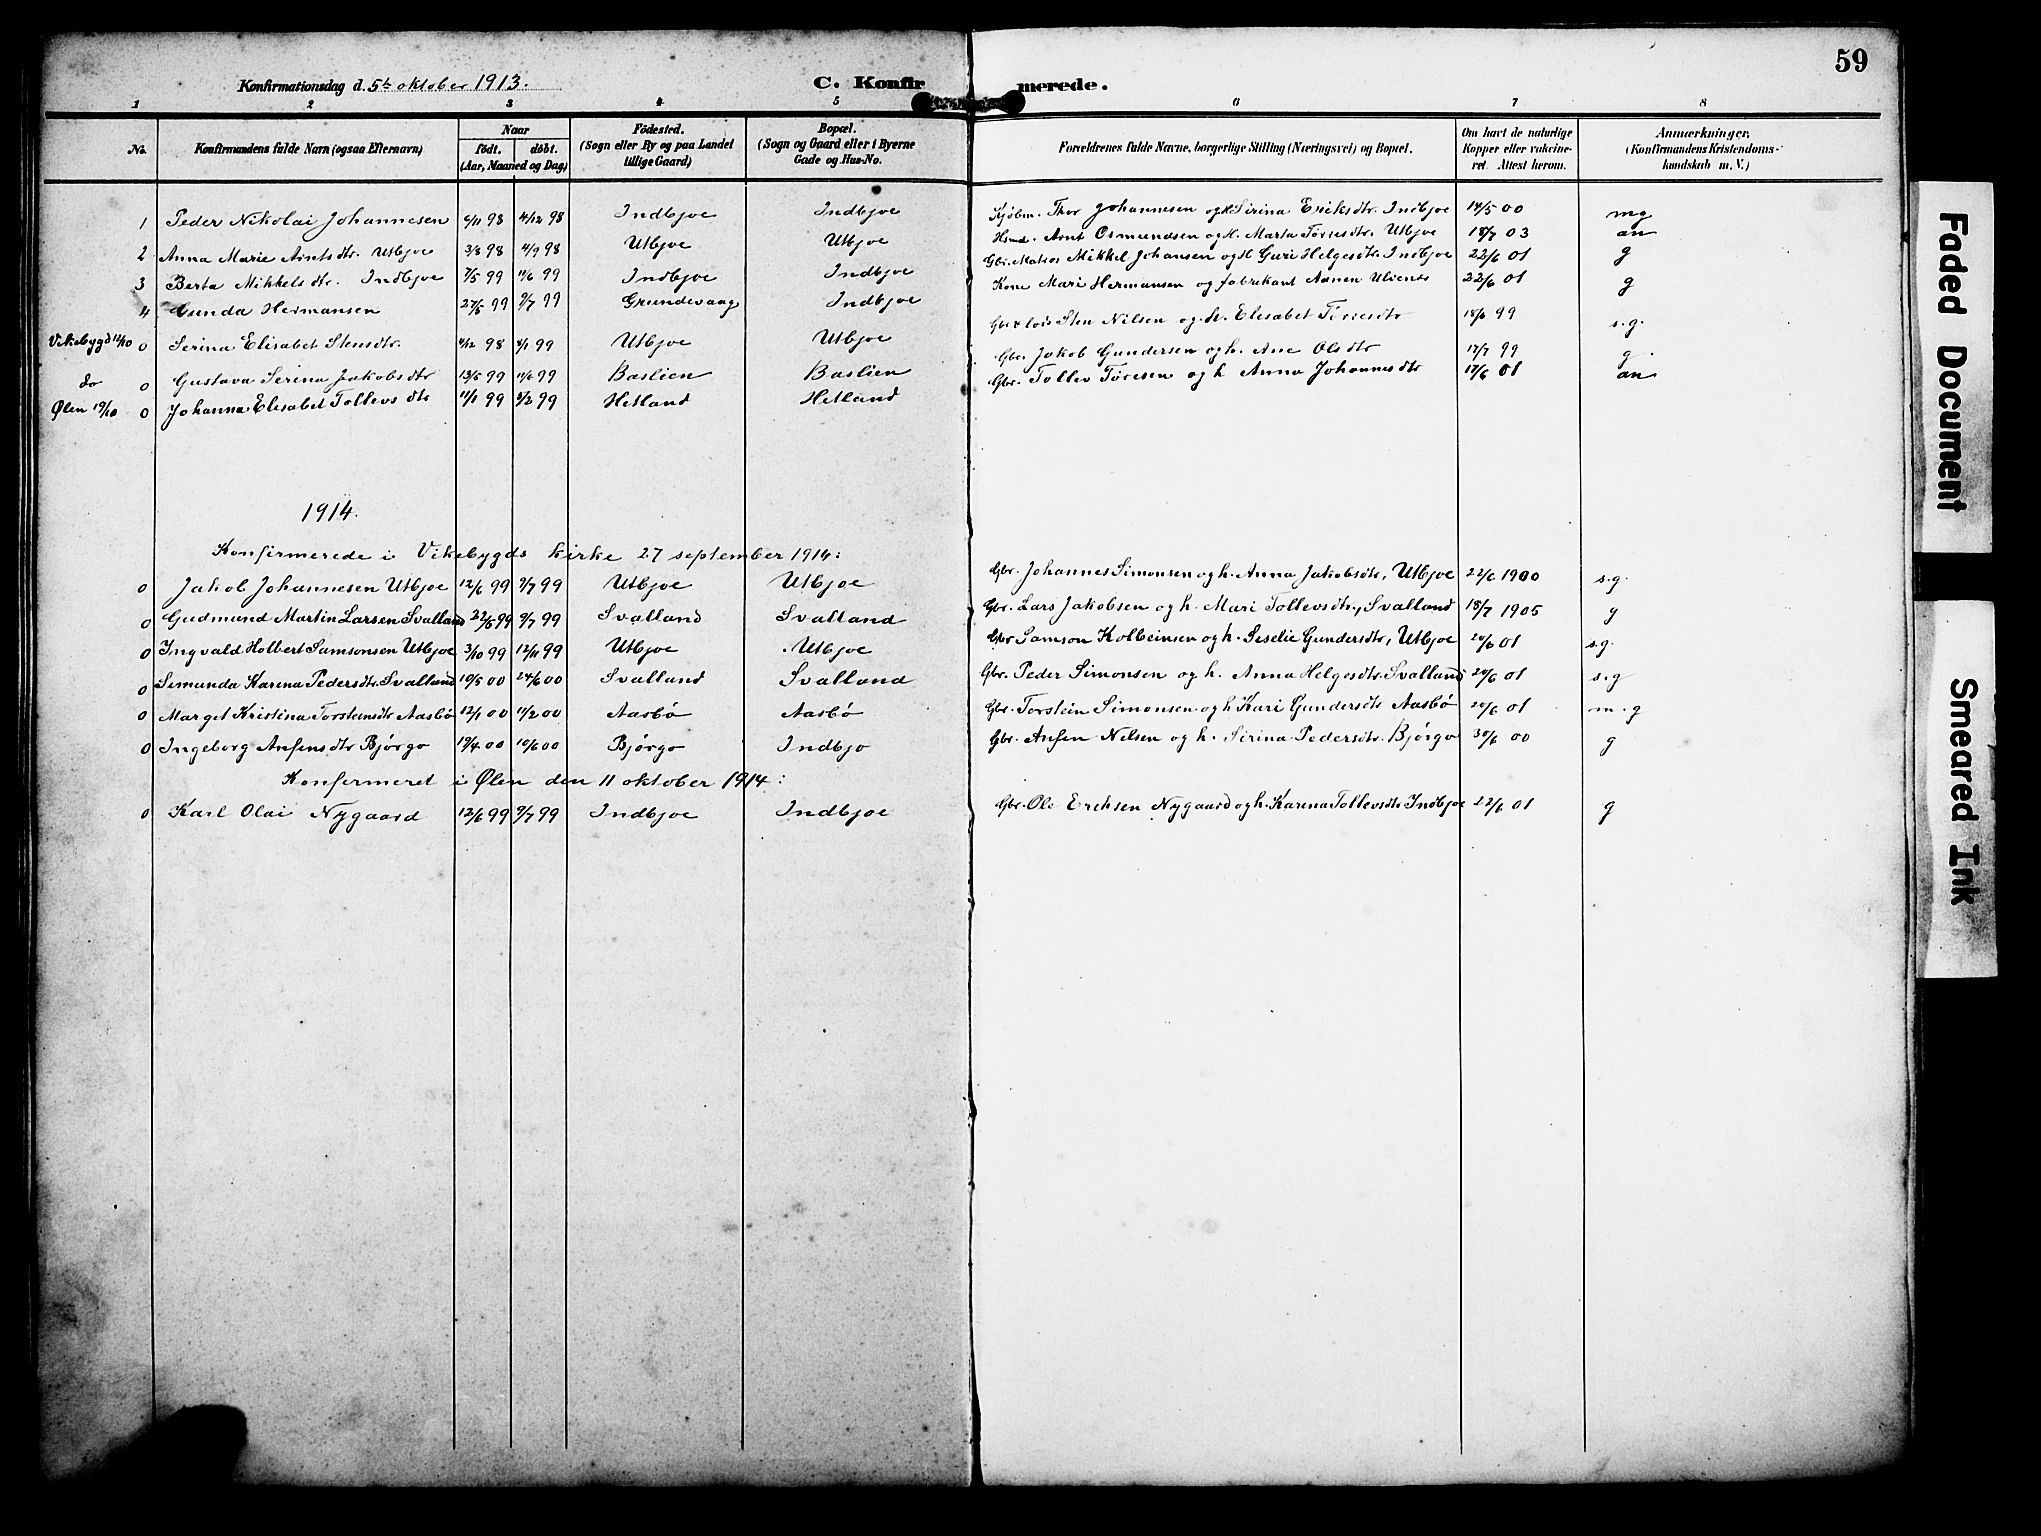 59
Konfirmationsdag d. 5te oktober 1913.
C. Konfirmerede.
1 2 3 4 5 6 7 8
No. Konfirmandens fulde Navn (ogsaa Efternavn) Naar født. døbt. (Aar, Maaned og Dag) Fødested. (Sogn eller By og paa Landet tillige Gaard) Bopæl. (Sogn og Gaard eller i Byerne Gade og Hus-No. Forældrenes fulde Navne, borgerlige Stilling (Næringsvei) og Bopæl. Om havt de naturlige Kopper eller vakcineret. Attest herom. Anmærkninger. (Konfirmandens Kristendomskundskab m. V.)
1 Peder Nikolai Johannesen 6/11 98 4/12 98 Indbjoe Indbjoe Kjøbm. Thor Johannesen og h. Sirina Eriksdtr. Indbjoe 14/5 00 mg
2 Anna Marie Arntsdtr. Utbjoe 3/8 98 4/9 98 Utbjoe Utbjoe Hsmd. Arnt Osmundsen og h. Marta Torresdtr. Utbjoe 18/7 03 an
3 Berta Mikkelsdtr. Indbjoe 7/5 99 11/6 99 Indbjoe Indbjoe Gbr. Matros Mikkel Johansen og h. Guri Helgesdtr. Indbjoe 22/6 01 g
4 Gunda Hermansen 27/5 99 9/7 99 Grundevaag Indbjoe Kone Mari Hermansen og fabrikant Aanen 22/6 01 g
Vikebygd 12/10 0 Serina Elisabet Stensdtr. 4/12 98 4/1 99 Utbjoe Utbjoe Gbr. Sten Nilsen og h. Elisabet Torresdtr 18/6 99 s.g.
do 0 Gustava Serina Jakobsdtr 13/5 99 11/6 99 Baslien Baslien Gbr. Jakob Gundersen og h. Ane Olsdtr 17/7 99 g.
Ølen 19/10 0 Johanna Elisabet Tollevsdtr 11/1 99 5/2 99 Hetland Hetland Gbr. Tollev Toresen og h Anna Johannesdtr 17/6 01 an
1914.
Konfirmerede i Vikebygds kirke 27 september 1914:
0 Jakob Johannesen Utbjoe 12/6 99 9/7 99 Utbjoe Utbjoe Gbr. Johannes Simonsen og h. Anna Jakobsdtr, Utbjoe 22/6 1900 s.g.
0 Gudmund Martin Larsen Svalland 22/5 99 9/7 99 Svalland Svalland Gbr. Lars Jakobsen og h. Mari Tollevsdtr., Svalland 18/7 1905 g
0 Ingvald Holbert Samsonsen Utbjoe 3/10 99 12/11 99 Utbjoe Utbjoe Gbr Samson Kolbeinsen og h. Seselie Gundersdtr, Utbjoe 20/6 01 s.g.
0 Simunda Karena Pedersdtr. Svalland 10/5 00 24/6 00 Svalland Svalland Gbr. Peder Simonsen og h. Anna Helgesdtr. Svalland 20/6 01 s.g
0 Marget Kristina Torsteinsdtr Aasbø 12/1 00 11/2 00 Aasbø Aasbø Gbr. Torstein Simonsen og h Kari Gundersdtr Aasbø 20/6 01 m.g
0 Ingeborg Anfensdtr Bjørgo 19/4 00 10/6 00 Bjørgo Indbjo Gbr. Anfen Nelsen og h. Sirina Pedersdtr. Bjørgo 30/6 00 g
Konfermeret i Ølen den 11 oktober 1914:
0 Karl Olai Nygaard 12/6 99 9/7 99 Indbjoe Indbjoe Gbr. Ole Erchsen Nygaard og h. Karena Tollevsdtr Indbjoe 22/6 01 g
Faded Document
Smeared Ink